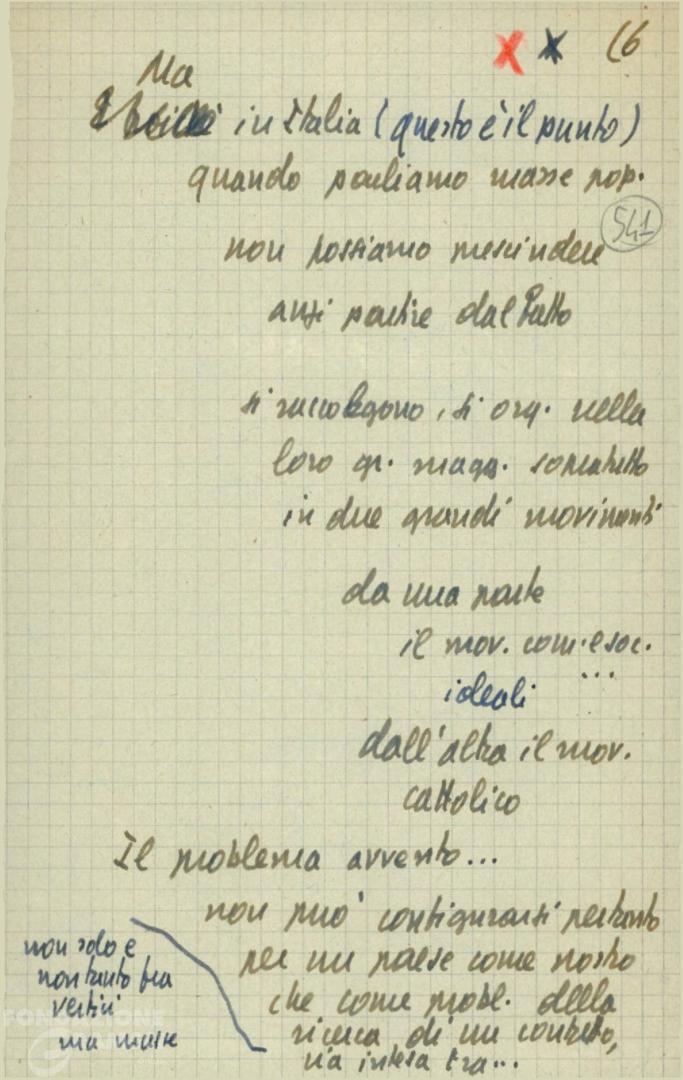 16
Ma
in Italia (questo è il punto)
quando parliamo masse pop.
541
non possiamo prescindere
anzi partire dal fatto
si raccolgono, si org. nella
loro gr. magg. soprattutto
in due grandi movimenti
da una parte
il mov. com. e soc.
...
ideali
dall'altra il mov.
cattolico
Il problema avvento...
non può configurarsi pertanto
per un paese come nostro
che come probl. della
ricerca di un contatto,
intesa tra...
non solo e
non tanto fra
vertici
ma masse
FONDAZIONE